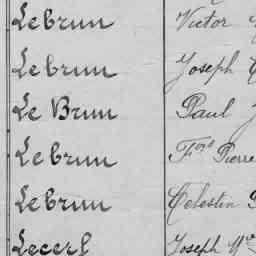 Lebrun Victor
Lebrun Joseph
Le Brun Paul J
Lebrun Fois Pierre
Lebrun Celestin
Lecerf Joseph Mie